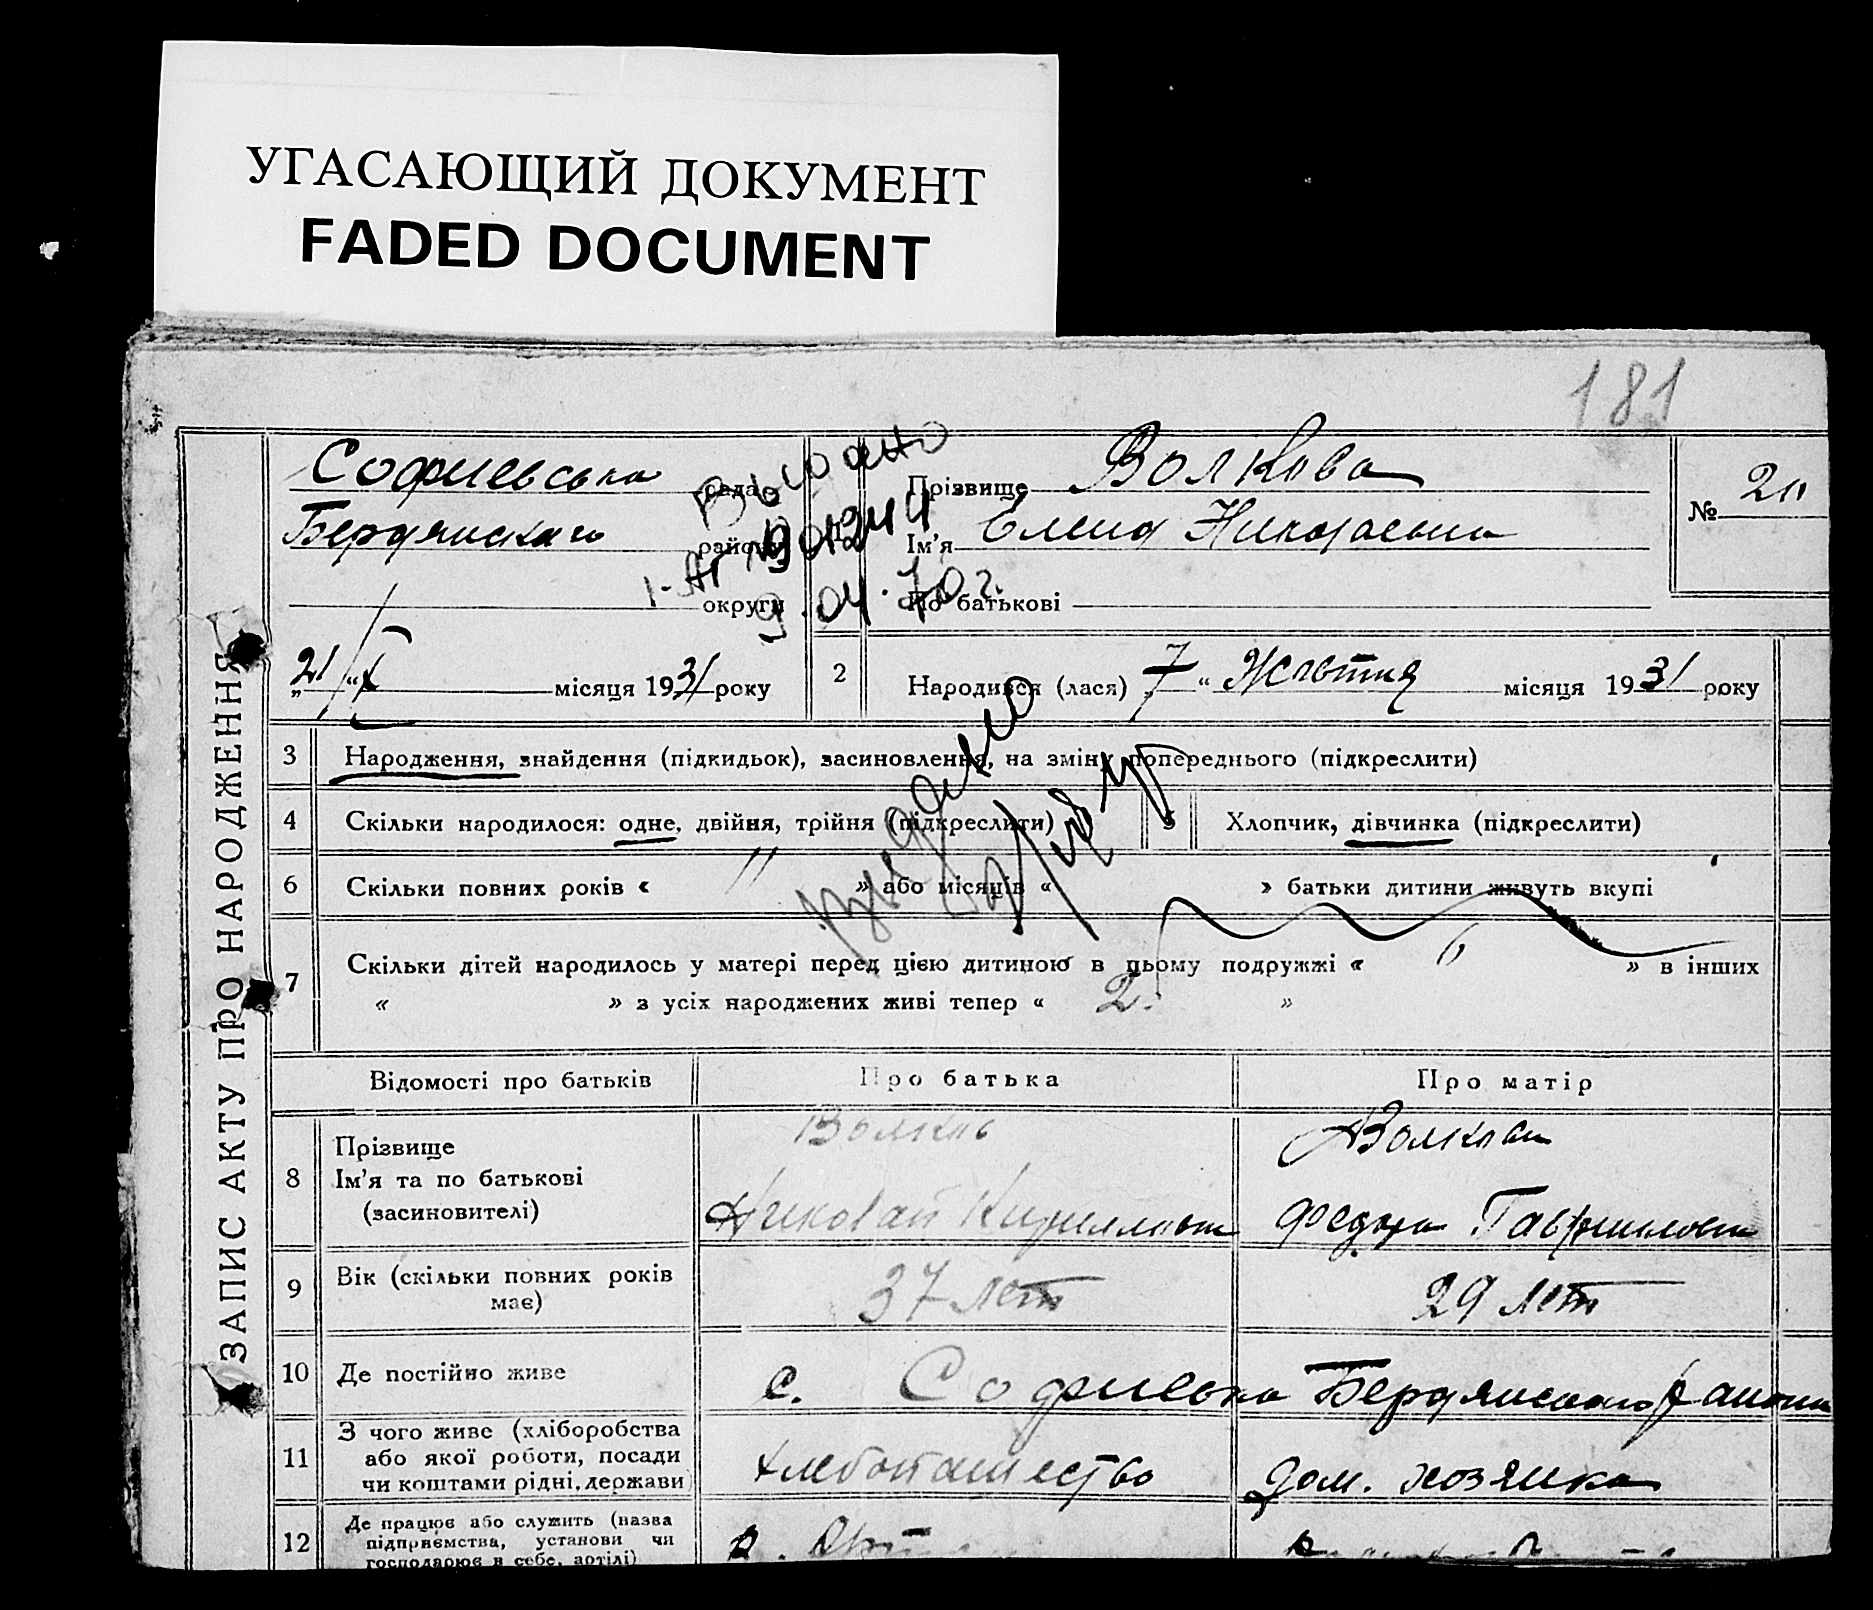 УГАСАЮЩИЙ ДОКУМЕНТ
FADED DOCUMENT
181
ЗАПИС АКТУ ПРО НАРОДЖЕННЯ
Софиевська рада
Бердянскаго району
округи
„21“ X місяця 1931 року
Выдано
9.04.70 г.
Прізвище Волкова
Ім'я Елена Николаевна
По батькові
№ 20
2 Народився (лася) „7“ Жовтня місяця 1931 року
3 Народження, знайдення (підкидьок), засиновлення, на зміну попереднього (підкреслити)
4 Скільки народилося: одне, двійня, трійня (підкреслити)
5 Хлопчик, дівчинка (підкреслити)
6 Скільки повних років « 11 » або місяців « » батьки дитини живуть вкупі
7 Скільки дітей народилось у матері перед цією дитиною в цьому подружжі « » в інших
« » з усіх народжених живі тепер « 2. »
Відомості про батьків Про батька Про матір
8 Прізвище
Ім'я та по батькові
(засиновителі)
Волков
Николай Кириллович
Волкова
Гавриловна
9 Вік (скільки повних років
має)
37 лет
29 лет
10 Де постійно живе
с. Софиевка Бердянского района
11 З чого живе (хліборобства
або якої роботи, посади
чи коштами рідні, держави)
хлебопашество
дом. хозяйка
12 Де працює або служить (назва
підприємства, установи чи
господарює в себе, артілі)